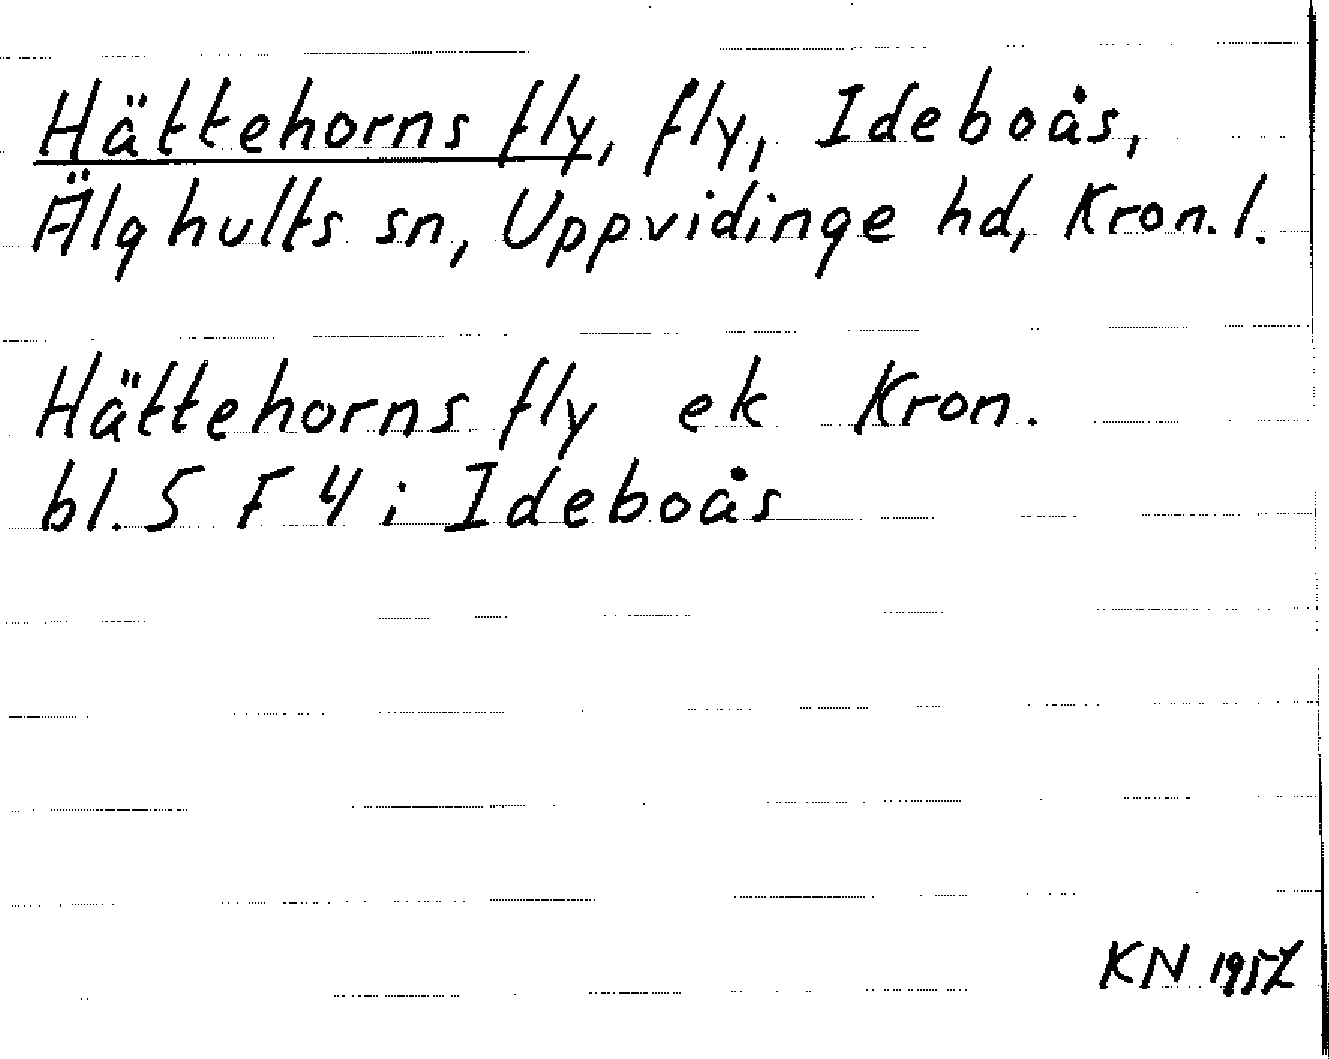 Hättehorns fly, fly, Ideboås,
Älghults sn, Uppvidinge hd, Kron. l.
Hättehorns fly ek Kron.
bl. 5 F 4 i Ideboås
KN 1957